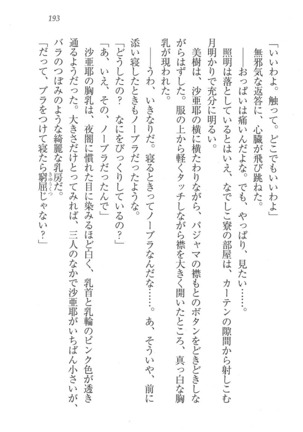 193
「いいわよ。触って。どこでもいいわよ」
無邪気な返答に、心臓が飛び跳ねた。
──おっぱいは痛いんだよな。でも、やっぱり、見たい……。
照明は落としているとはいえ、なにしろ寮の部屋は、カーテンの隙間から射しこむ
月明かりで充分に明るい。
美樹は、沙亜耶の横に横たわりながら、パジャマの襟もとのボタンをどきどきしな
がらはずした。服の上から軽くタッチしながら襟を大きく開いたところ、真っ白な胸
乳が現われた。
──うわ、いきなりだ。寝るときってノーブラなんだな……。あ、そういや、前に
添い寝したときもノーブラだったような。
「どうしたの？　なにをびっくりしているの？」
「あ、ああ、ノーブラだったんで」
沙亜耶の胸乳は、夜闇に慣れた目に染みるほど白く、乳首と乳輪のピンク色が透き
通るようだった。大きさだけとってみれば、三人のなかで沙亜耶がいちばん小さいが、
バラのつぼみのような綺麗な乳房だ。
「だって、ブラをつけて寝たら窮屈じゃない？」